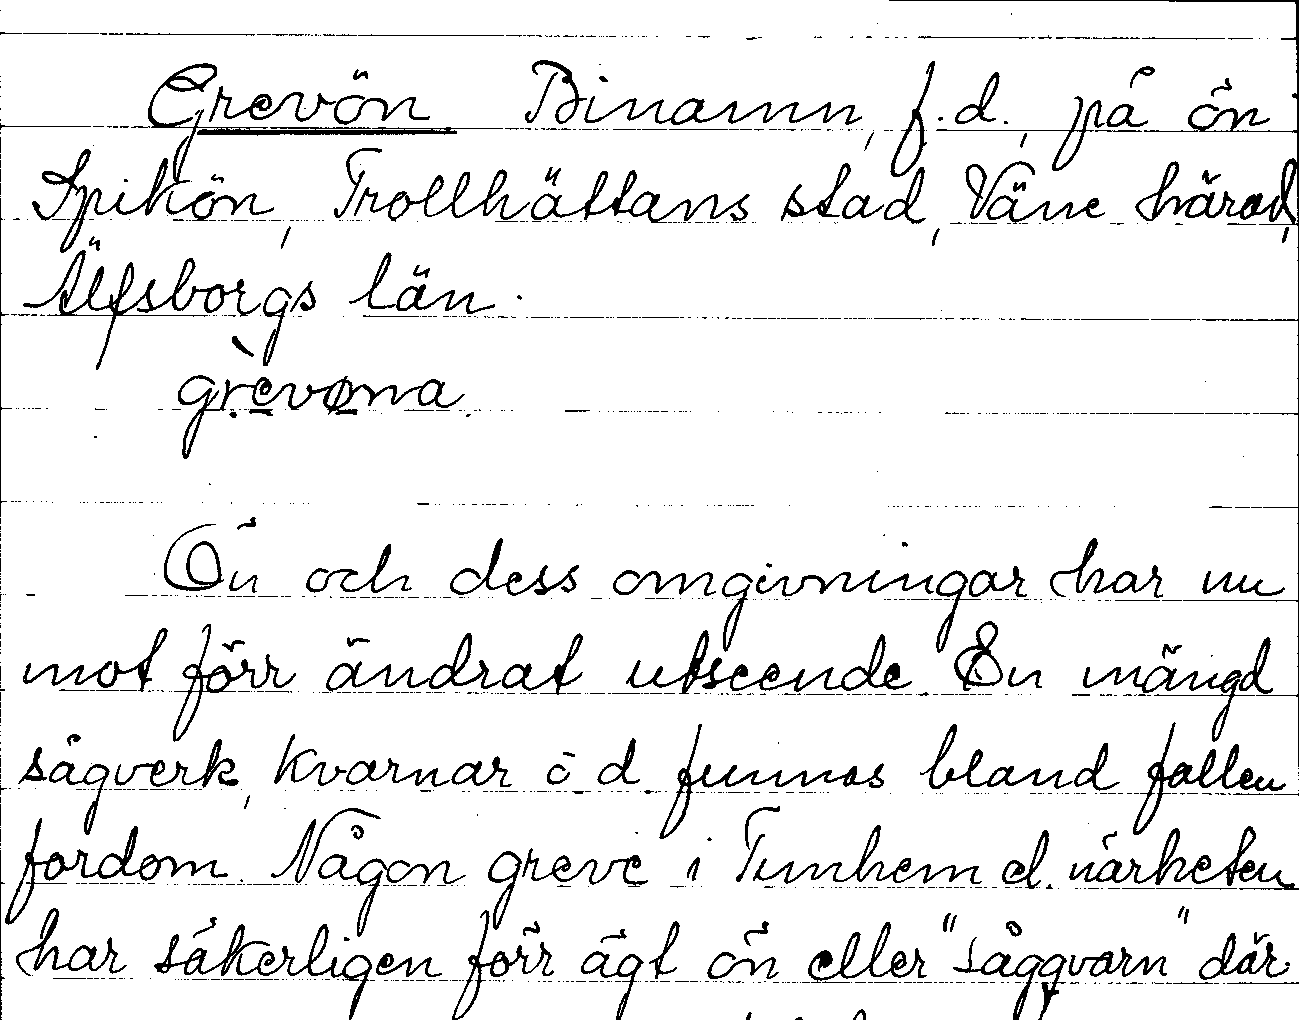 Grevön. Binamn, f.d., på ön
Spikön, Trollhättans stad, Väne härad,
Älfsborgs län.
grevøna.
Ön och dess omgivningar har nu
mot förr ändrat utseende. En mängd
sågverk, kvarnar o d. funnos bland fallen
fordom. Någon greve i Tunhem el. närheten
har säkerligen förr ägt ön eller "sågqvarn" där.